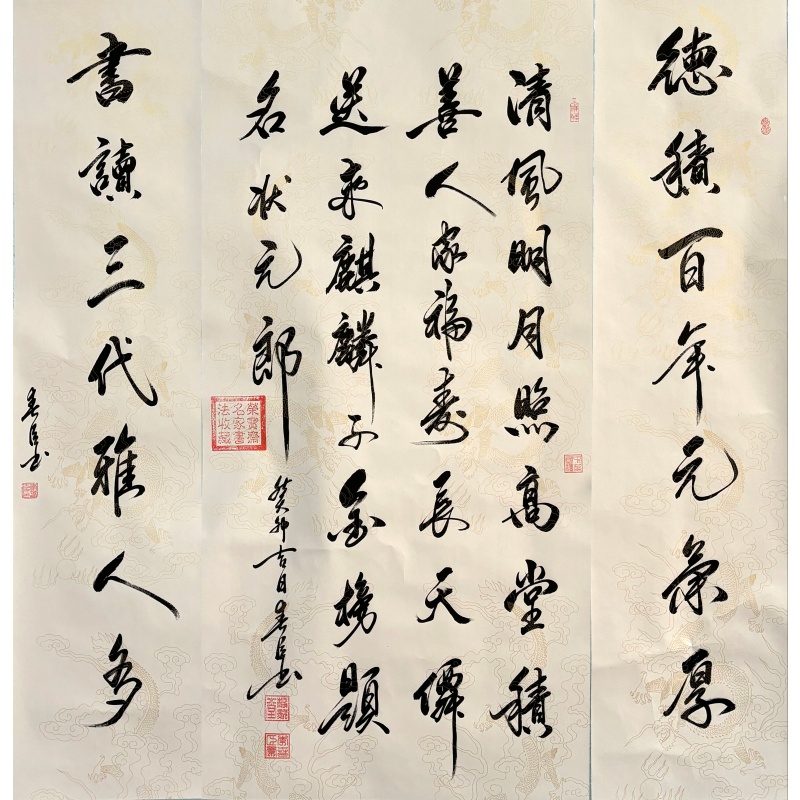 德積百年元氣厚
清風明月照高堂積
善人家福壽長天僊
送來麒麟子金榜題
名状元郎
榮寶齋
名家書
法收藏
癸卯吉日春臣书
書讀三代雅人多
春臣书